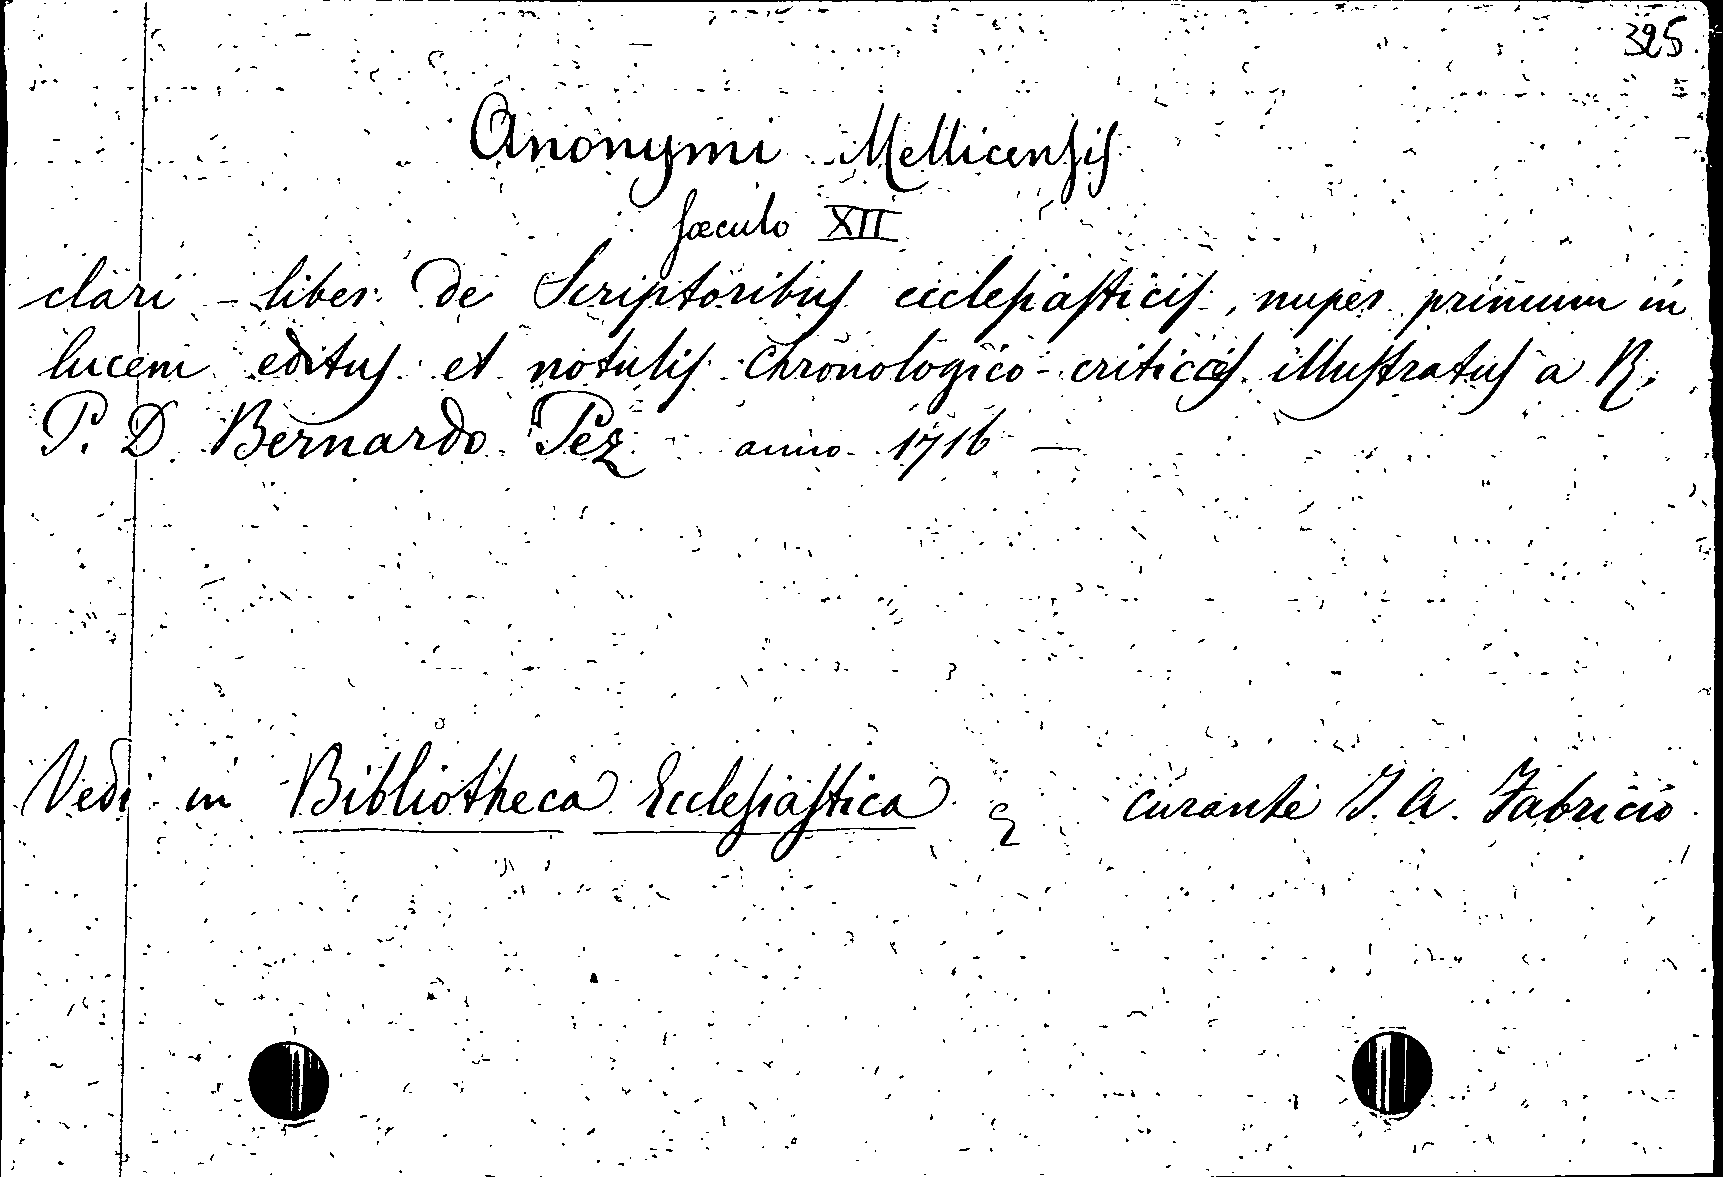 325
Anonymi Mellicensis
sæculo XII
clari - liber de Scriptoribus ecclesiasticis, nuper primum in
lucem editus et notulis chronologico-criticis illustratus a R.
P. D. Bernardo Pez anno 1716 —
Vedi in Bibliotheca Ecclesiastica curante J. A. Fabricio